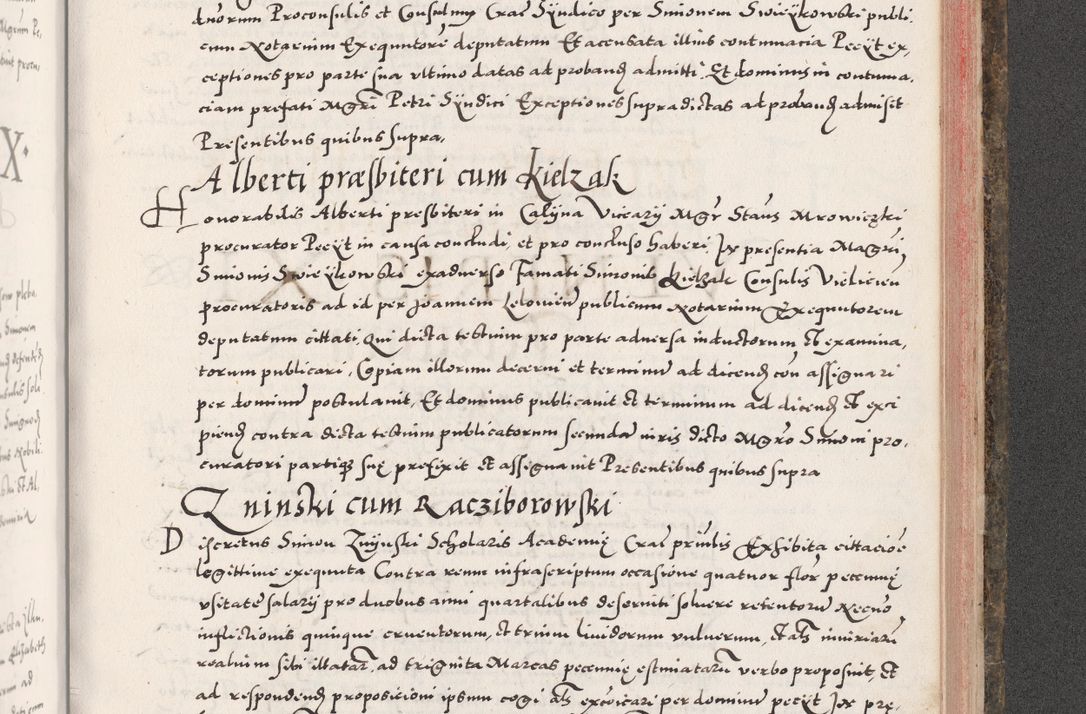 duorum Proconsulis et Consulum Crac Syndico per Simonem Swieykowski publi,
cum Notarium Exequutore deputatum Et acensata illius contumacia Peeyt ex,
ceptiones pro parte sua ultimo datas ad proband admitti. Et dominus in contuma,
ciam prefati Mgri Petri Syndici Exceptiones supra dictas ad proband admisit
Presentibus quibus supra.
Alberti præsbiteri cum Kielzak
Honorabilis Alberti presbiteri in Calyna Vicarij Mgr Staus Mrowiczki
procurator Peeyt in causa concludi, et pro concluso haberi. In presentia Magri
Simonis Swieykowski exadverso Famati Simonis Kielzak Consulis Vielicen
procuratoris ad id per Joannem Lelowien publicum Notarium Exequutorem
deputatum cittati, Qui dicta testium pro parte adversa inductorum et examina,
torum publicari, Copiam illorum decerni et terminum ad dicend con assignari
per dominum postulavit, Et dominus publicavit et terminum ad dicend et exci
piend contra dicta testium publicatorum secunda iuris dicto Mgro Simoni pro,
curatori partiq suę prefixit et assignavit Presentibus quibus supra
Zninski cum Racziborowski
Discretus Simon Znynski Scholaris Academię Crac prnlis Exhibita cittacioe
legittime exequuta Contra reum infrascriptum occasione quatuor flor pecunię
usitate salarij pro duobus anni quartalibus deserviti soluere retentoru Necno
inflictionis quinque cruentorum, et trium lividorum vulnerum, et als iniuriaru
realium sibi illatar, ad triginta Marcas pecunię estimataru verbo proposuit, et
ad respondend propositioni ipsum cogi als excoicari per dominum pecyt In prę,